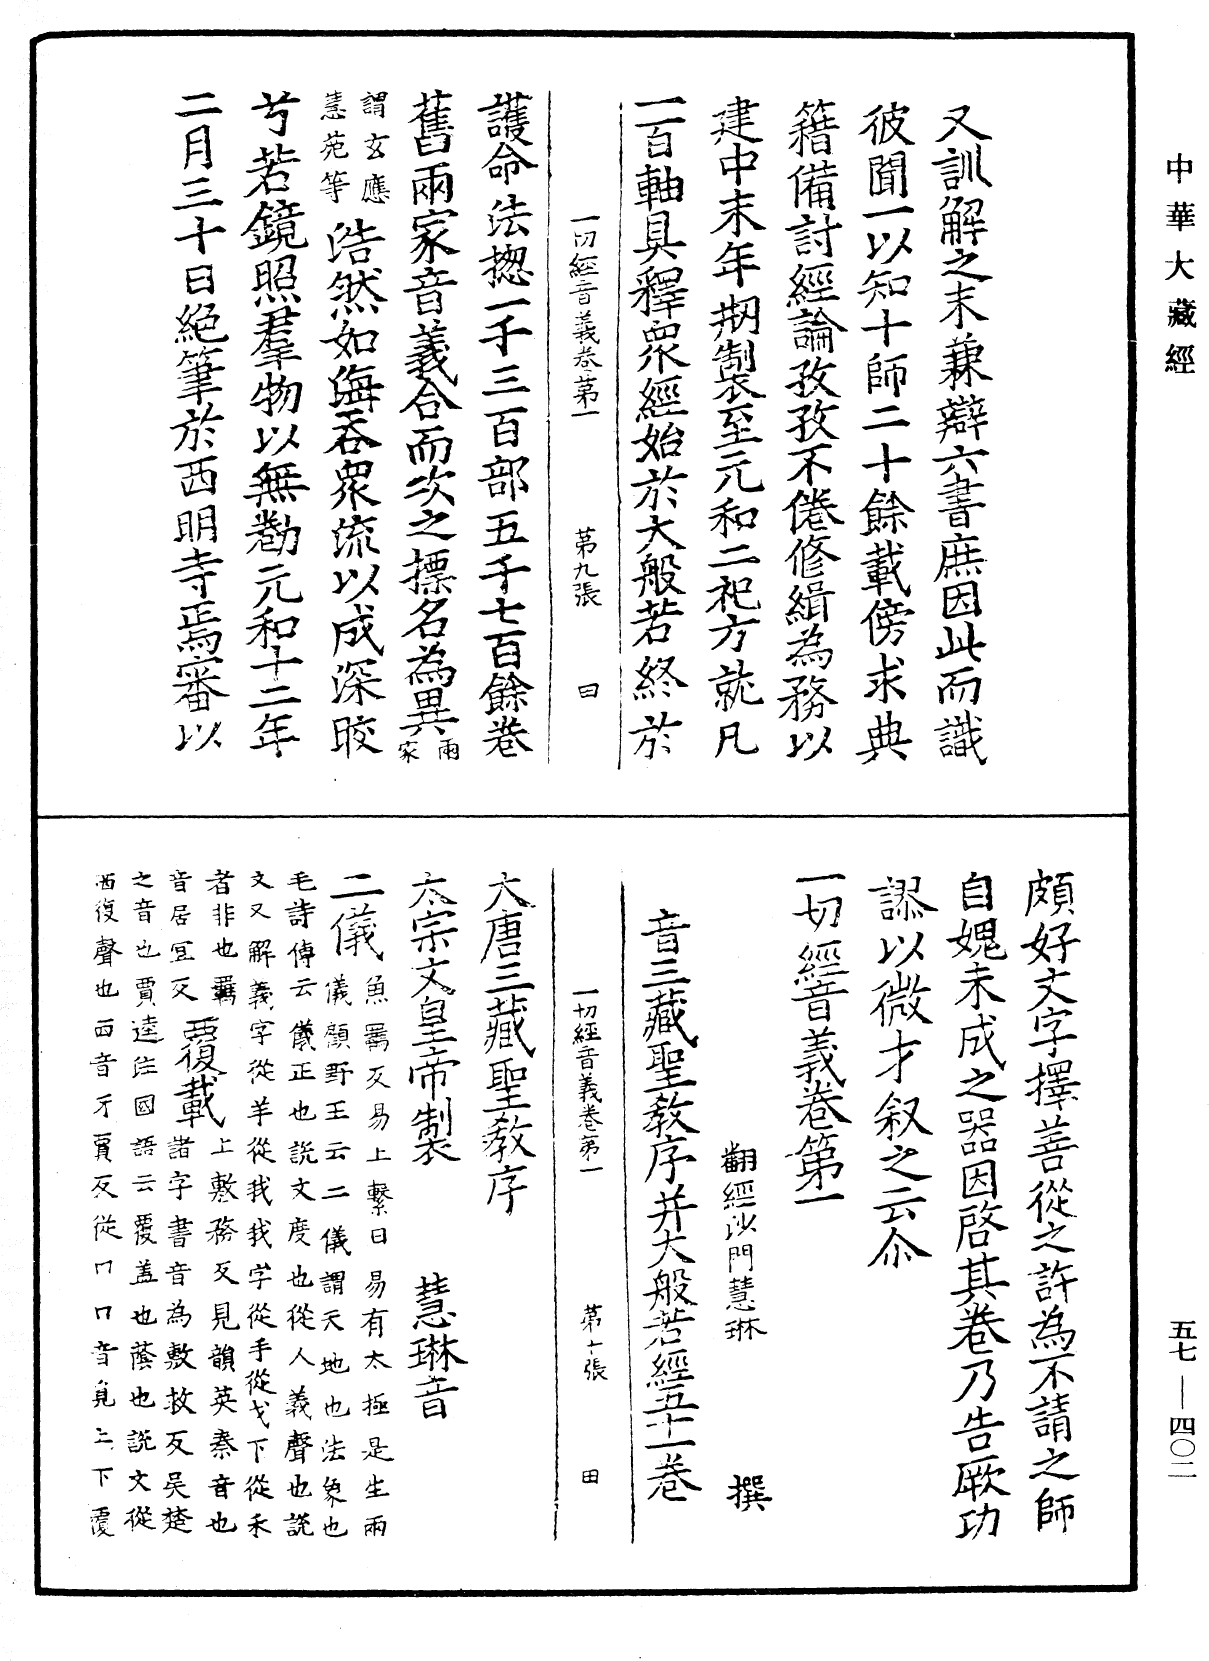 中華大藏經
又訓解之末兼辯六書庶因此而識
彼聞一以知十師二十餘載傍求典
籍備討經論孜孜不倦修緝為務以
建中末年剏製至元和二祀方就凡
一百軸具釋眾經始於大般若終於
一切經音義卷第一 第九張 田
護命法摠一千三百部五千七百餘卷
舊兩家音義合而次之摽名為異兩家
謂玄應慧苑等浩然如海吞眾流以成深皎
兮若鏡照羣物以無勸元和十二年
二月三十日絕筆於西明寺焉審以
頗好文字擇善從之許為不請之師
自媿未成之器因啓其卷乃告厥功
謬以微才叙之云尒
一切經音義卷第一
翻經沙門慧琳 撰
音三藏聖教序并大般若經五十一卷
一切經音義卷第一 第十張 田
大唐三藏聖教序
太宗文皇帝製 慧琳音
二儀魚羈反易上繫曰易有太極是生兩
儀顧野王云二儀謂天地也法象也
毛詩傳云儀正也說文度也從人義聲也說
文又解義字從羊從我我字從手從戈下從禾
者非也羈
音居宜反覆載上敷務反見韻英秦音也
諸字書音為敷救反吳楚
之音也賈逵注國語云覆盖也蔭也說文從
襾復聲也襾音牙賈反從冂冂音覓上下覆
五七—四〇二